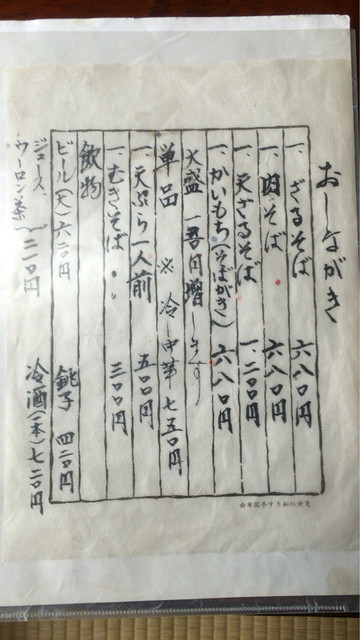 おしながき
一、ざるそば 六八〇円
一、肉そば 六八〇円
一、天ざるそば 一、二〇〇円
一、かいもち(そばがき) 六八〇円
大盛 一
単品 ※ 冷し中華 七五〇円
一、天ぷら一人前 五〇〇円
一、むきそば 三〇〇円
飲物
ビール(大) 六二〇円 銚子 四二〇円
ジュース、
ウーロン茶 二一〇円 冷酒(一本)七二〇円